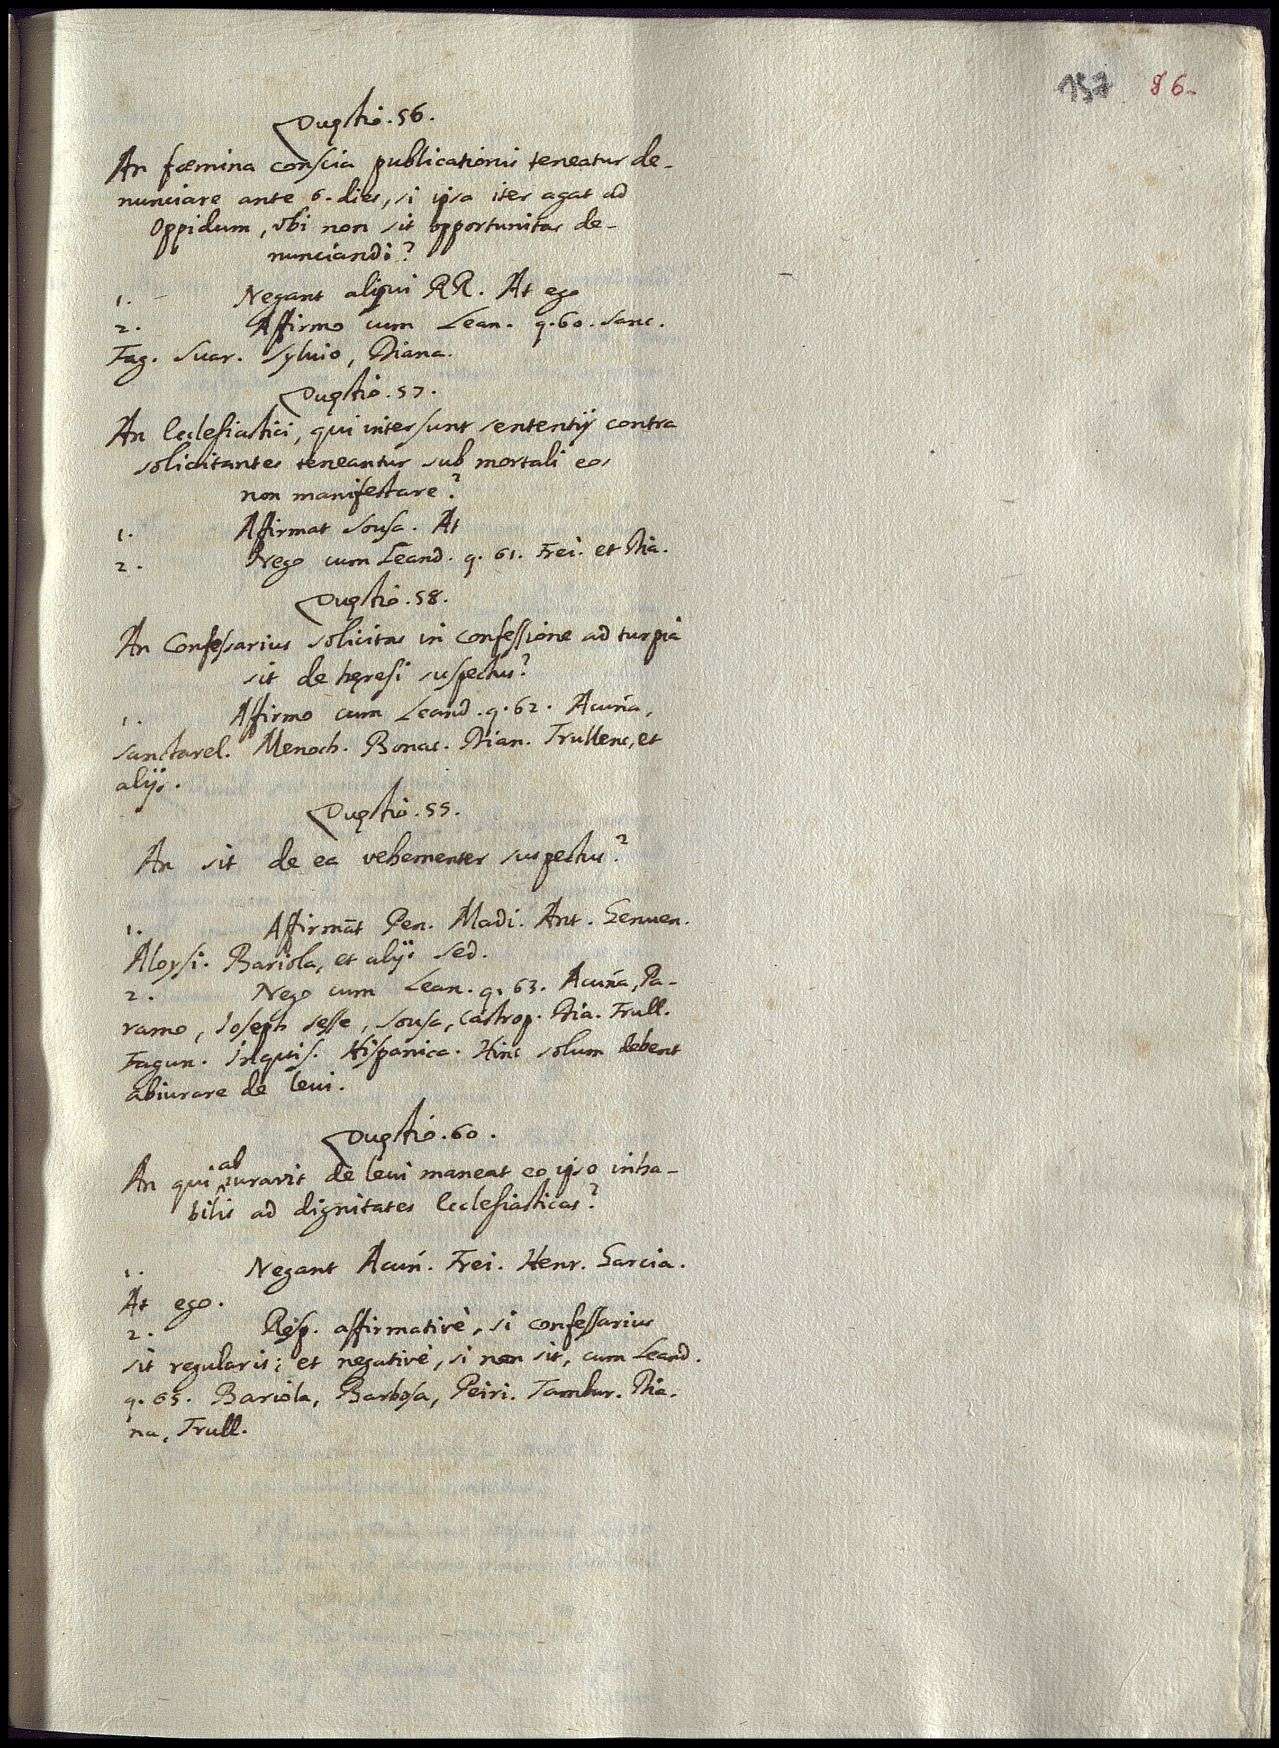 157 86.
Quęstio. 56.
An fœmina conscia publicationis teneatur de-
nunciare ante 6. dies, si ipsa iter agat ad
Oppidum, vbi non sit opportunitas de-
nunciandi?
1. Negant aliqui RR. At ego
2. Affirmo cum Lean. q. 60. Sanc.
Fag. Suar. Syluio, Diana.
Quęstio. 57.
An Ecclesiastici, qui intersunt sententijs contra
solicitantes teneantur sub mortali eos
non manifestare?
1. Affirmat Sousa. At
2. Nego cum Leand. q. 61. Frei. et Dia.
Quęstio. 58.
An Confessarius solicitas in confessione ad turpia
sit de hęresi suspectus?
1. Affirmo cum Leand. q. 62. Acuña,
Sanctarel. Menoch. Bonac. Dian. Trullenc, et
alijs.
Quęstio. 55.
An sit de ea vehementer suspectus?
1. Affirmāt Pen. Madi. Ant. Genuen.
Aloysi. Bariola, et alijs sed.
2. Nego cum Lean. q. 63. Acuña, Pa-
ramo, Joseph Sesse, Sousa, Castrop. Dia. Trull.
Fagun. Inquis. Hispanica. Hinc solum debent
abiurare de leui.
Quęstio. 60.
An qui abiuravit de leui maneat eo ipso inha-
bilis ad dignitates Ecclesiasticas?
1. Negant Acuñ. Frei. Henr. Garcia.
At ego.
2. Resp. affirmativè, si confessarius
sit regularis; et negativè, si non sit, cum Leand.
q. 65. Bariola, Barbosa, Peiri. Tambur. Dia-
na, Trull.